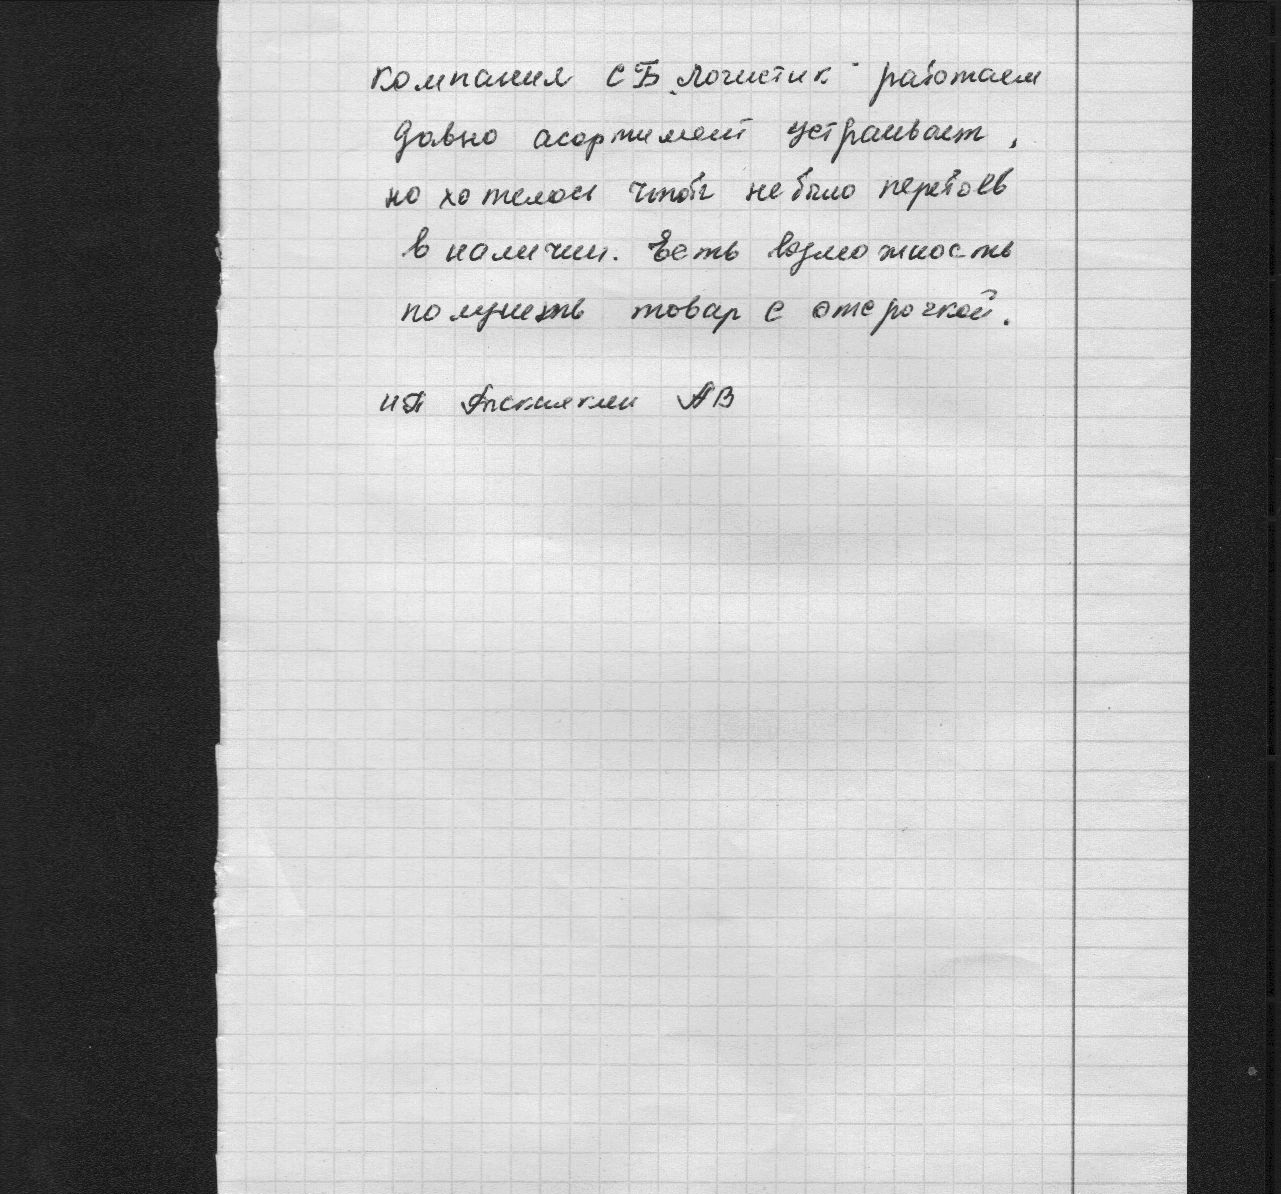 Компания СБ „Логистик" работаем
давно асортимент устраивает,
но хотелось чтобы не было перебоев
в наличии. Есть возможность
получить товар с отсрочкой.
ИП АВ